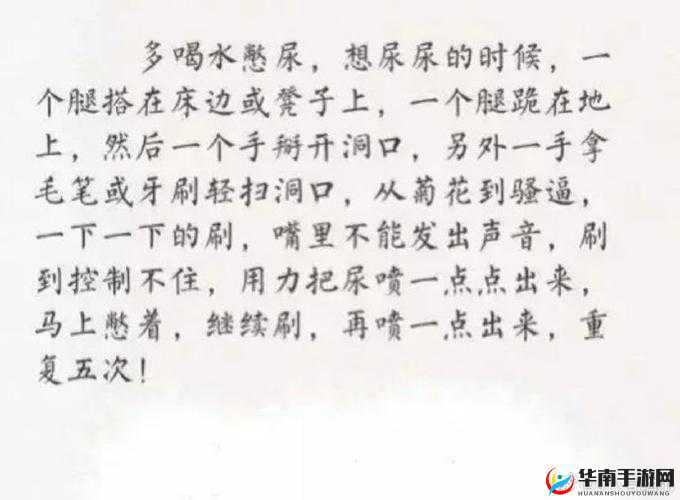 多喝水憋尿，想尿尿的时候，一
个腿搭在床边或凳子上，一个腿跪在地
上，然后一个手掰开洞口，另外一手拿
毛笔或牙刷轻扫洞口，从菊花到骚逼，
一下一下的刷，嘴里不能发出声音，刷
到控制不住，用力把尿喷一点点出来，
马上憋着，继续刷，再喷一点出来，重
复五次！
华南手游网
HUANANSHOUYOUWANG